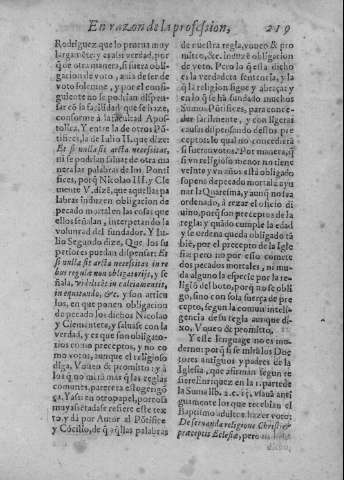 En razon de la profession, 219
Rodriguez que lo prueua muy
largamẽte: y es assi verdad, porque
de otra manera, si fuera obligacion
de voto, auia de ser de
voto solemne, y por el consiguiente
no se podian dispensar
cõ la facilidad que se haze,
conforme á la facultad Apostolica.
Y entre la de otros Põtifices,
la de Iulio II. que dize:
Et si nulla sit acta necessitas,
ni se podrian saluar de otra manera
las palabras de los Pontifices,
porq̃ Nicolao III. y Clemente
V. dizẽ, que aquellas palabras
induzen obligacion de
pecado mortal en las cosas que
ellos señalan, interpretando la
voluntad del fundador. Y Iulio
Segundo dize, Que los superiores
puedan dispensar: Et
si nulla sit acta necessitas in rebus
regulæ non obligatorijs, y señala,
videlicèt in calciamentis,
in equitando, &c. y son articulos,
en que ponen obligacion
de pecado los dichos Nicolao
y Clemẽte, y saluase con la
verdad, y es que son obligatorios
como preceptos, y no como
votos, aunque el religioso
diga, Voueo & promitto: y à
los q̃ no mirã mas q̃ las reglas
comunes, parecera esto gerigõça.
Y assi en otro papel, por cosa
muy assẽtada se refiere este texto,
y dà por Autor al Põtifice
y Cõcilio, de q̃ aq̃llas palabras
de nuestra regla, voueo & promitto,
&c. induzẽ obligacion
de voto. Pero lo q̃ està dicho
es la verdadera sentencia, y la
q̃ la religion sigue y abraça; y
en lo q̃ se hà fundado muchos
Sumos Põtifices, para conceder
facilmente, y con ligeras
causas dispensaciõ destos preceptos:
lo qual no concederiã
si fueran votos. Por manera, q̃
si vn religioso menor no tiene
veinte y vn años està obligado
so pena de pecado mortal à ayunar
la Quaresma, y aun q̃ no sea
ordenado, à rezar el oficio diuino,
porq̃ son preceptos de la
regla: y quãdo cumple la edad
y se ordena queda obligado tãbiẽ,
por el precepto de la Iglesia:
pero no por esso comete
dos pecados mortales, ni muda
alguno la especie por la religiõ
del boto, porq̃ no se obligo,
sino con sola fuerça de precepto,
segun la comun inteligencia
desta regla aunque dixo,
Voueo & promitto.
Y este lenguage no es moderno:
porq̃ si se mirã los Doctores
antiguos y padres de la
Iglesia, que afirman segun refiere
Enriquez en la 1. parte de
la Suma lib. 2. c. 15. vsauã antiguamente
los que recebian el
Baptismo adultos hazer voto:
De seruanda religione Christi &
præceptis Ecclesiæ, pero